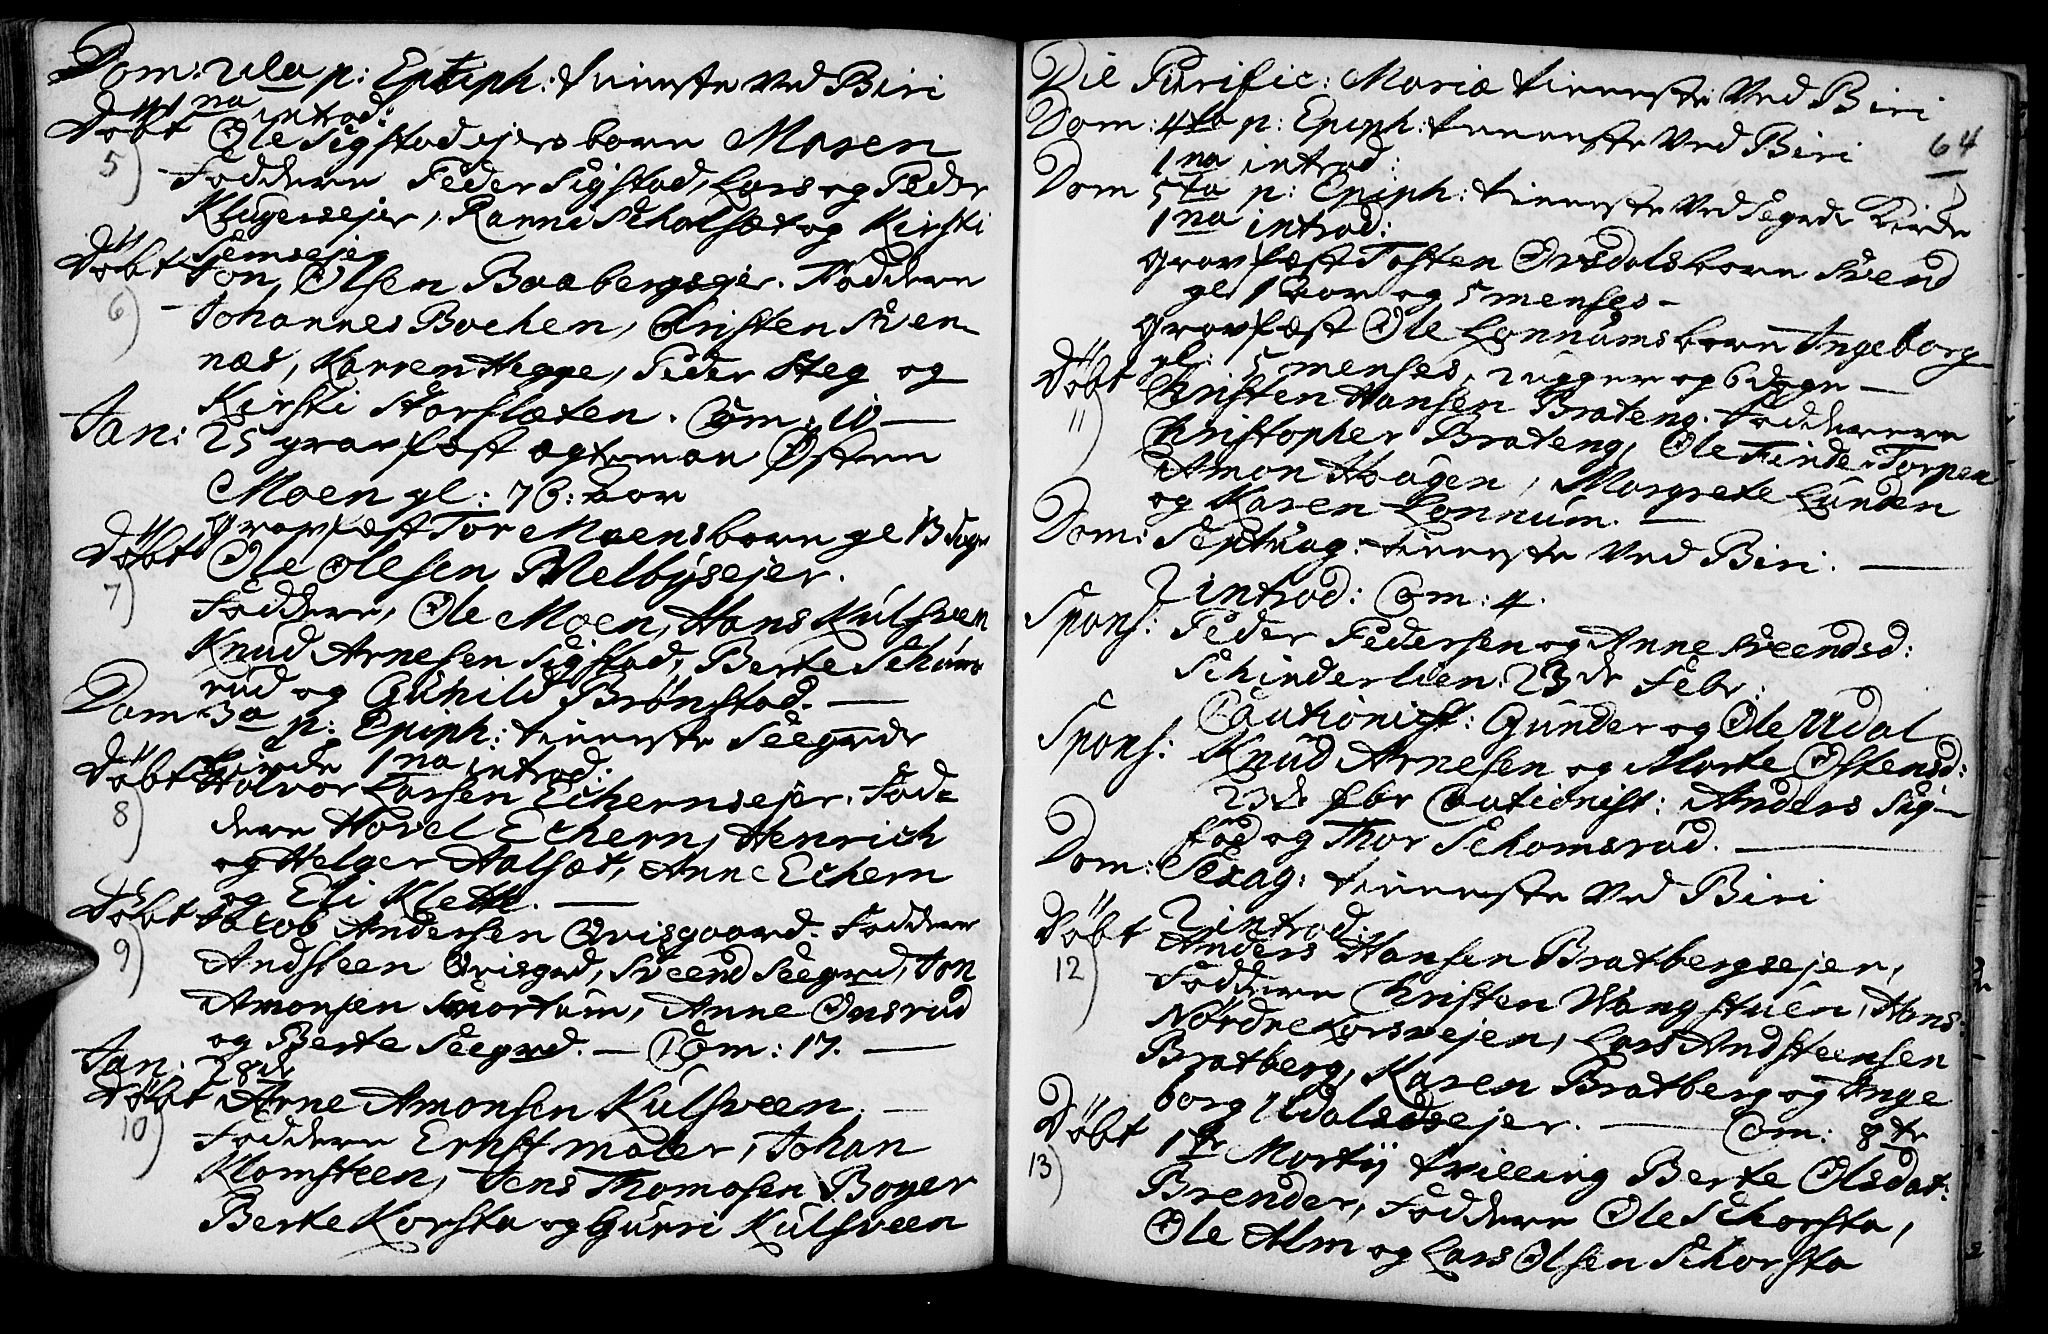 Dom: 2da p: Epiph: tieneste ved Biri
1 na introd:
Døbt Ole Sigstadsejers barn Maren
5) Faddere Peder Sigstad, Lars og Peder
Klugersejer, Ranni Skalset og Kirsti
Semsejer
Døbt Jon Olsen Baabergsejer. Faddere
6) Johannes Bochen, Christen Skien-
næs, Karren Hegge, Peder Steg og
Kirsti Storsleten. Com: 10
Jan: 25 gravfæst ægteman Østen
Moen gl: 76: aar
gravfæst Tor Moens barn gl 13 dage
Døbt Ole Olesen Melbysejer.
7) Faddere, Ole Moen, Hans Kulsveen
Knud Arnesen Sigstad, Berte Schums
rud og Gunild Brønstad.
Dom 3a p: Epiph: tieneste Seegards
Kirche 1 na introd:
Døbt Halvor Larsen Echernsejer. Fad-
8) dere Havel Echern, Henrich
og Helger Aalset, Anne Echern
og Eli Klett.
Døbt Jacob Andersen Qvisgaard. Faddere
9) Andsteen Qvisgrd, Sveend Seegrd, Jon
Amonsen Smortum, Anne Onsrud
og Berte Seegrd. — Com: 17.
Jan: 28de
Døbt Arne Amonsen Kulsveen.
10) Faddere Ernst maler, Johan
Klomsteen, Jens Thomasen Boyer
Berte Korsta og Gurri Kulsveen
Die Purific: Mariæ tieneste ved Biri
Dom: 4ta p: Epiph: tieneste ved Biri
64
1 na introd:
Dom 5ta p: Epiph: tieneste ved Segrds Kirche
1 na introd:
gravfæst Tosten Ørsdals barn Svend
gl 1 aar og 5 menses
gravfæst Ole Lønnums barn Ingeborg
gl: 5 menses, 2 uger og 6 dage
Døbt Christen Hansen Brateng. Faddere
11) Christopher Brateng, Ole Finde Torpen
Amon Haugen, Margrete Lunden
og Karen Lønnum.
Dom: Septuag: tieneste ved Biri.
2 introd: Com: 4.
Spons: Peder Pedersen og Anne Sveendsd:
Schinderlien. 23de Febr:
Cautionist: Gunder og Ole Udal
Spons: Knud Arnesen og Marte Østensd:
23de fbr Cautionist: Anders Sig-
stad og Thor Schomsrud.
Dom: Sexag: tieneste ved Biri
2 introd:
Døbt Anders Hansen Bratbergsejer,
12) Faddere Christen Wangstuen, Hans
Nordre Korsvejen, Lars Andsteensen
Bratberg, Karen Bratberg og Inge
borg Udalsejer. — Com: 8te
Døbt 1te Martij tvilling Berte Olsdat:
13) Brender, Faddere Ole Schorsta,
Ole Alm og Lars Olsen Schorsta